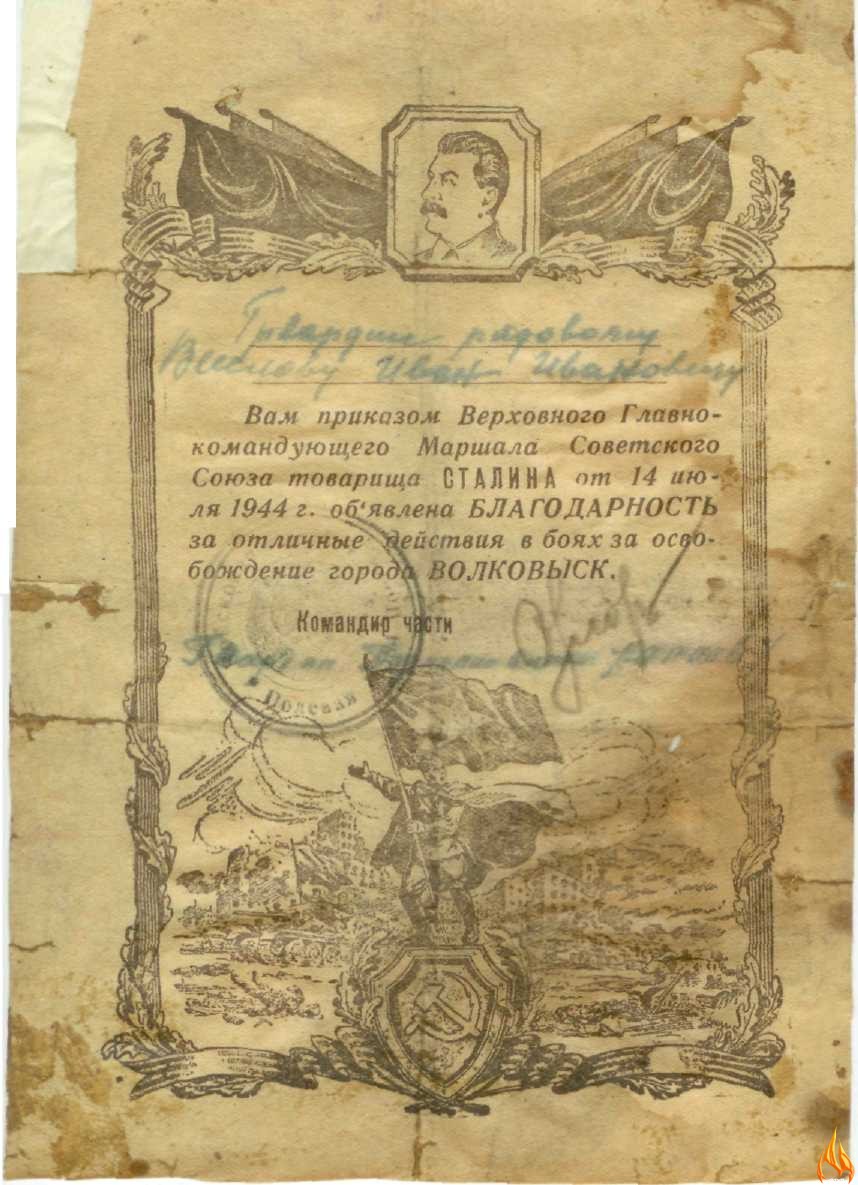 Гвардии рядовому
Веселову Иван Ивановичу
Вам приказом Верховного Главно-
командующего Маршала Советского
Союза товарища СТАЛИНА от 14 ию-
ля 1944 г. об‘явлена БЛАГОДАРНОСТЬ
за отличные действия в боях за осво-
бождение города ВОЛКОВЫСК.
Командир части
Гвардии
Полевая